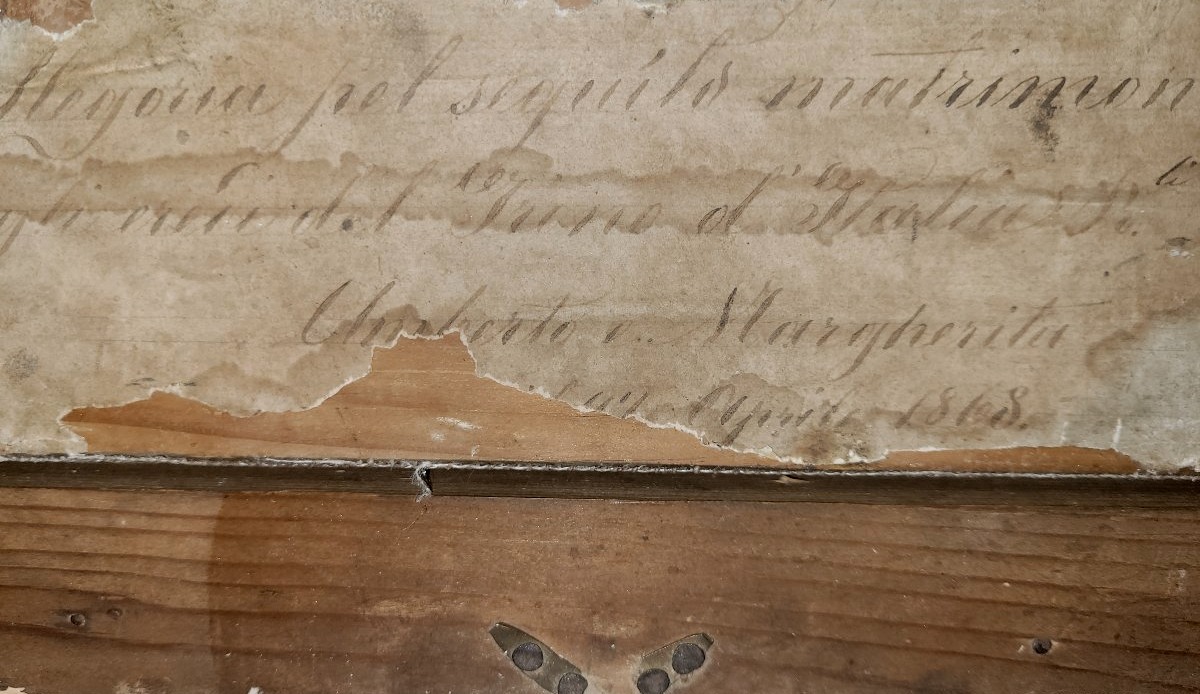 Allegoria pel seguito matrimon
gli eredi del Trono d'Italia R.li
Umberto e Margherita
il 22 Aprile 1868.